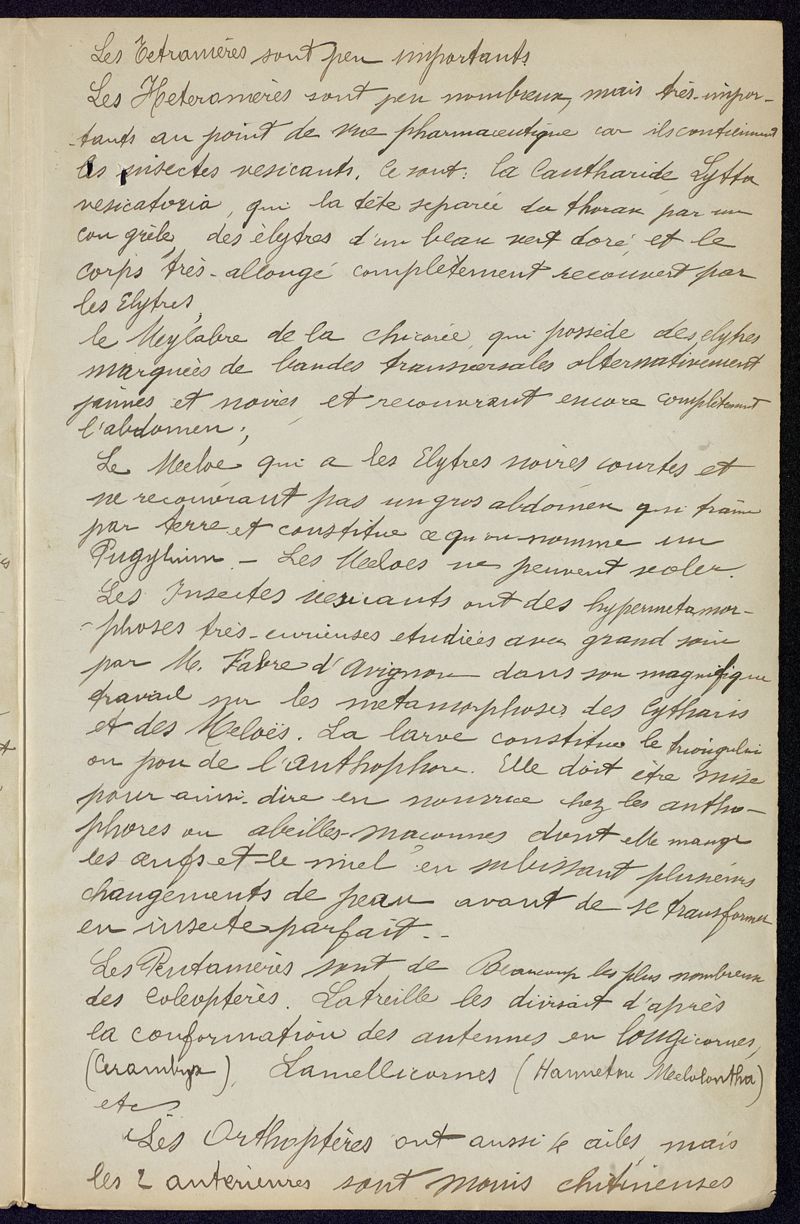 Les Tetramères sont peu importants
Les Heteromères sont peu nombreux, mais très-impor-
-tants au point de vue pharmaceutique car ils contiennent
les insectes vesicants. Ce sont: la Cantharide, Lytta
vesicatoria, qui la tête separée du thorax par un
cou grèle, des élytres d'un beau vert doré et le
corps très-allongé complètement recouvert par
les Elytres,
le Meylabre de la chicorée, qui possède des elytres
marquées de bandes transversales alternativement
jaunes et noires, et recouvrant encore complètement
l'abdomen;
Le Meeloe qui a les Elytres noires courtes et
ne recouvrant pas un gros abdomen qui traine
par terre et constitue ce qu'on nomme un
Pugylium. — Les Meeloes ne peuvent voler.
Les Insectes vesicants ont des hypermetamor-
-phoses très-curieuses etudiées avec grand soin
par M. Fabre d'Avignon dans son magnifique
travail sur les metamorphoses des Cytharis
et des Meloës. La larve constitue le triongulin
ou pou de l'anthophore. Elle doit être mise
pour ainsi-dire en nourrice chez les antho-
phores ou abeilles-maconnes dont elle mange
les œufs et le miel en subissant plusieurs
changements de peau avant de se transformer
en insecte parfait. -
Les Pentamères sont de Beaucoup les plus nombreux
des Coleoptères. Latreille les divisait d'après
la conformation des antennes en longicornes,
(Cerambyx), Lamellicornes (Hanneton Meelolontha)
etc
Les Orthoptères ont aussi 4 ailes, mais
les 2 anterieures sont moins chitineuses